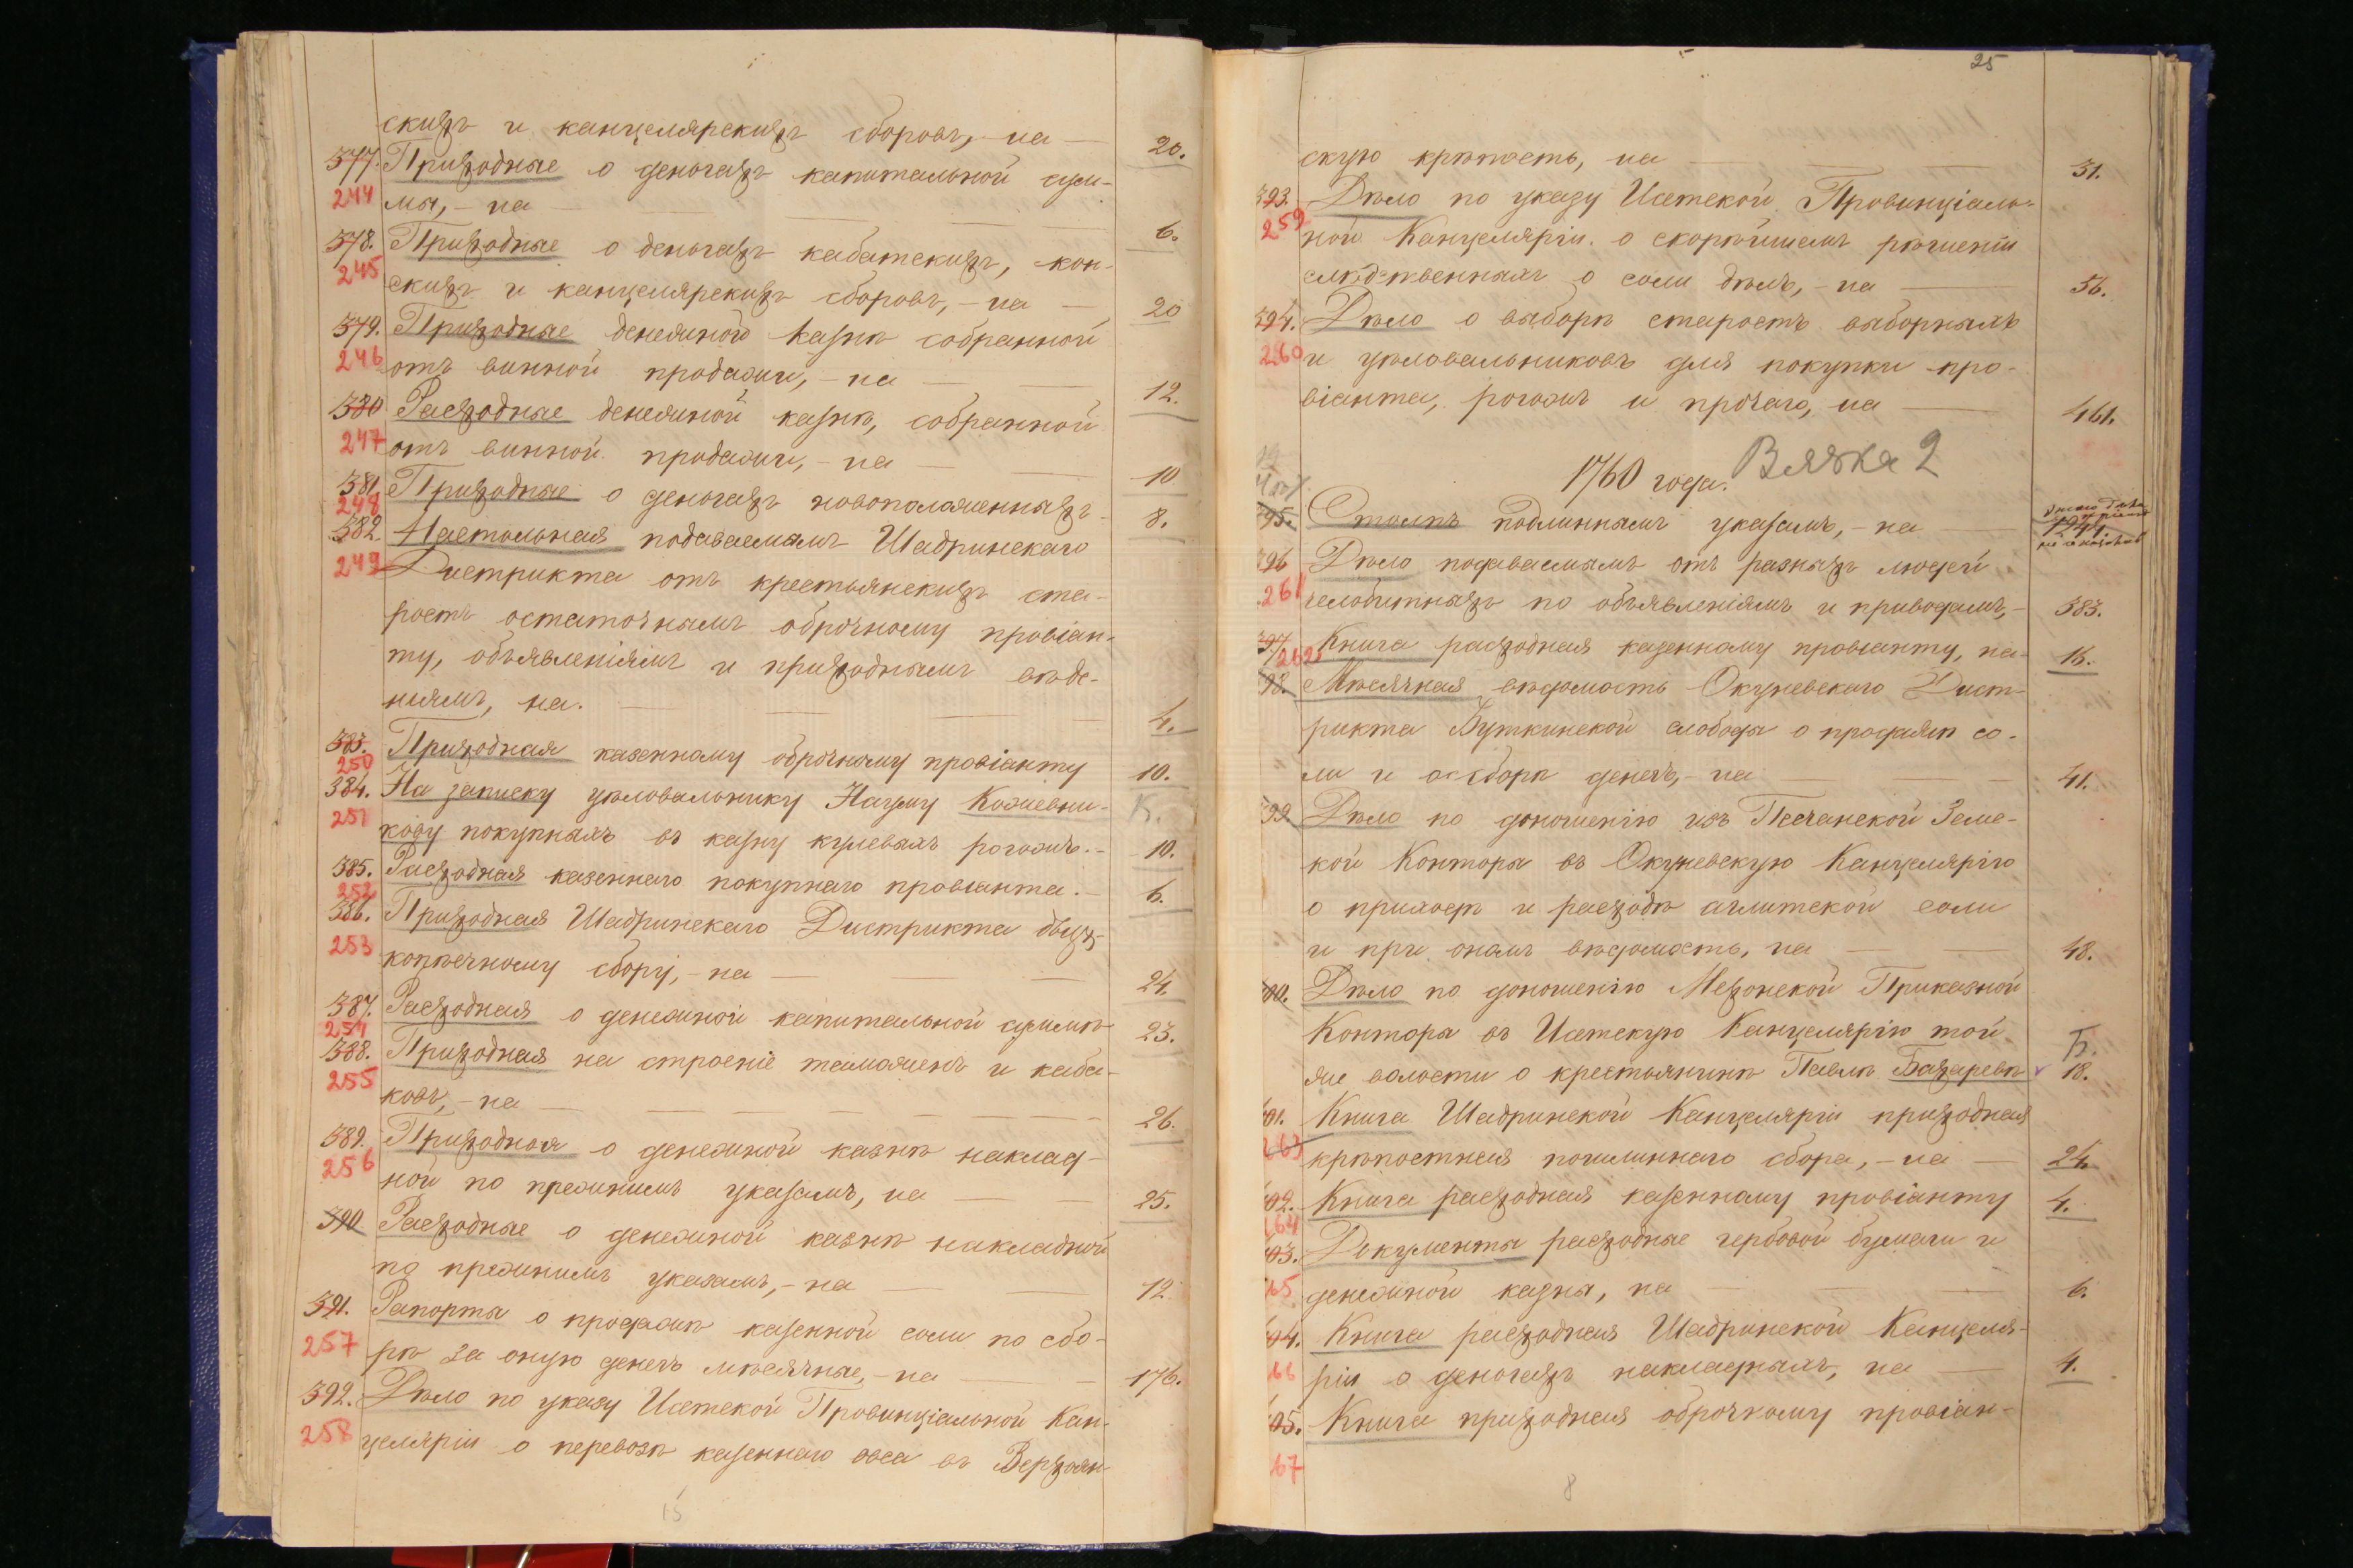 скихъ и канцелярскихъ сборовъ, на — 20.
377. Приходные о деньгахъ капитальной сум-
244 мы, – на — 6.
378. Приходные о деньгахъ кабатскихъ, кон-
245 скихъ и канцелярскихъ сборовъ, – на — 20
379. Приходные денежной казнѣ собранной
246 отъ винной продажи, – на — 12.
380 Расходные денежной казнѣ, собранной
247 отъ винной продажи, – на — 10
381. Приходные о деньгахъ новоположенныхъ – 8.
248
382. Настольная подаваемымъ Шадринскаго
249 Дистрикта отъ крестьянскихъ ста-
ростъ остаточнымъ оброчному провіан-
ту, объявленіямъ и приходнымъ вѣде-
ніямъ, на. — 4.
383. Приходная казенному оброчному провіанту 10.
250
384. На записку цѣловальнику Науму Кожевни- К.
251 кову покупныхъ въ казну кулевыхъ рогожъ. – 10.
385. Расходная казеннаго покупнаго провіанта. – 6.
252
386. Приходная Шадринскаго Дистрикта двухъ-
253 копѣечному сбору, – на — 24.
387. Расходная о денежной капитальной суммѣ 23.
254
388. Приходная на строеніе таможенъ и каба-
255 ковъ, – на — 26.
389. Приходная о денежной казнѣ наклад-
256 ной по прежнимъ указамъ, на — 25.
390 Расходные о денежной казнѣ накладной
по прежнимъ указамъ, – на — 12
391. Рапорты о продажѣ казенной соли по сбо-
257 рѣ за оную денегъ мѣсячные, – на — 176.
392. Дѣло по указу Исетской Провинціальной Кан-
258 целяріи о перевозѣ казеннаго овса въ Верхояи-
15
25
скую крѣпость, на — 31.
393. Дѣло по указу Исетской Провинціаль-
259 ной Канцеляріи о скорѣйшемъ рѣшеніи
слѣдственныхъ о соли дѣлъ, – на — 56.
394. Дѣло о выборѣ старостъ выборныхъ
260 и цѣловальниковъ для покупки про-
віанта, рогожъ и прочаго, на — 461.
1760 года. Вязка 2
395. Столпъ подлиннымъ указамъ, – на — 1241.
396 Дѣло подаваемымъ отъ разныхъ людей
261 челобитныхъ по объявленіямъ и приводамъ, – 383.
397 Книга расходная казенному провіанту, на – 16.
262
98. Мѣсячная вѣдомость Окуневскаго Дист-
рикта Буткинской слободы о продажѣ со-
ли и о сборѣ денегъ, – на — 41.
99. Дѣло по доношенію изъ Песчанской Земс-
кой Конторы въ Окуневскую Канцелярію
о приходѣ и расходѣ аглитской соли
и при ономъ вѣдомость, на — 48.
00. Дѣло по доношенію Мехонской Приказной
Конторы въ Исетскую Канцелярію той
же волости о крестьянинѣ Павлѣ Бахаревѣ Б. 18.
01. Книга Шадринской Канцеляріи приходная
263 крѣпостная пошлиннаго сбора, – на — 24.
02. Книга расходная казенному провіанту 4.
64
03. Документы расходные гербовой бумаги и
65 денежной казны, на — 6.
04. Книга расходная Шадринской Канцеля-
66 ріи о деньгахъ накладныхъ, на — 4.
05. Книга приходная оброчному провіан-
67
8